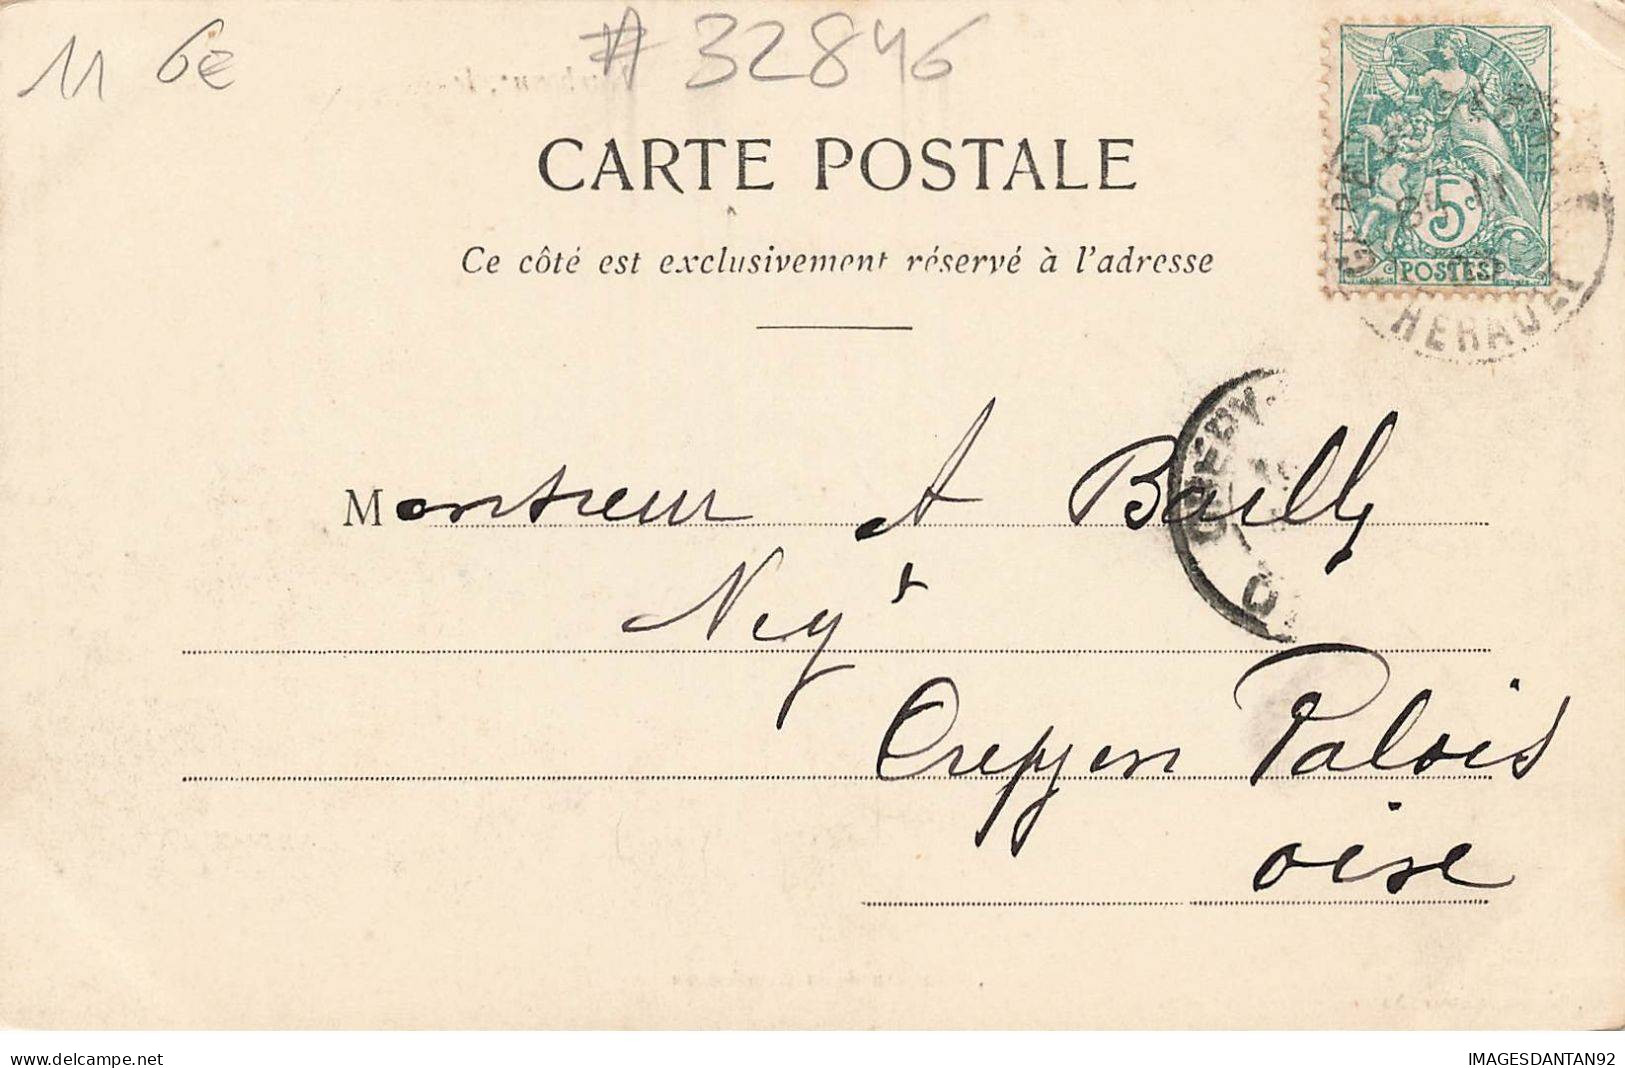 11 6€ # 32846
CARTE POSTALE
Ce côté est exclusivement réservé à l'adresse
5c
POSTES
HERAULT
CREPY
Monsieur A Bailly
Neg t
Crepy en Valois
oise
www.delcampe.net IMAGESDANTAN92